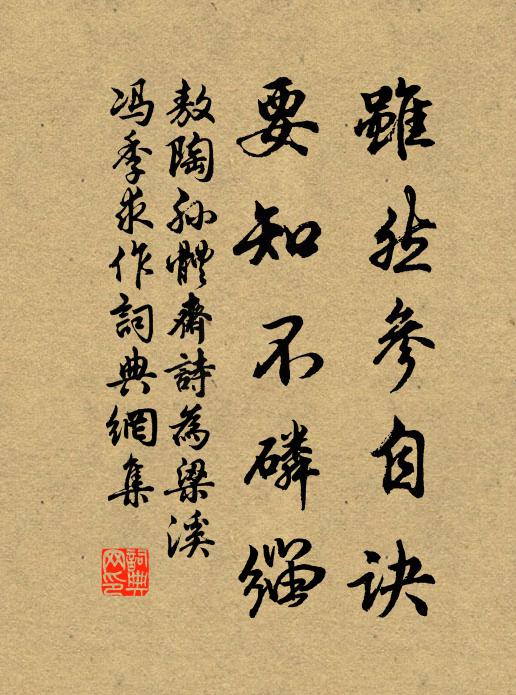 雖然參自訣
要知不磷緇
敖陶孫體齋詩為梁溪
馮季求作詞典網集
詞典网印